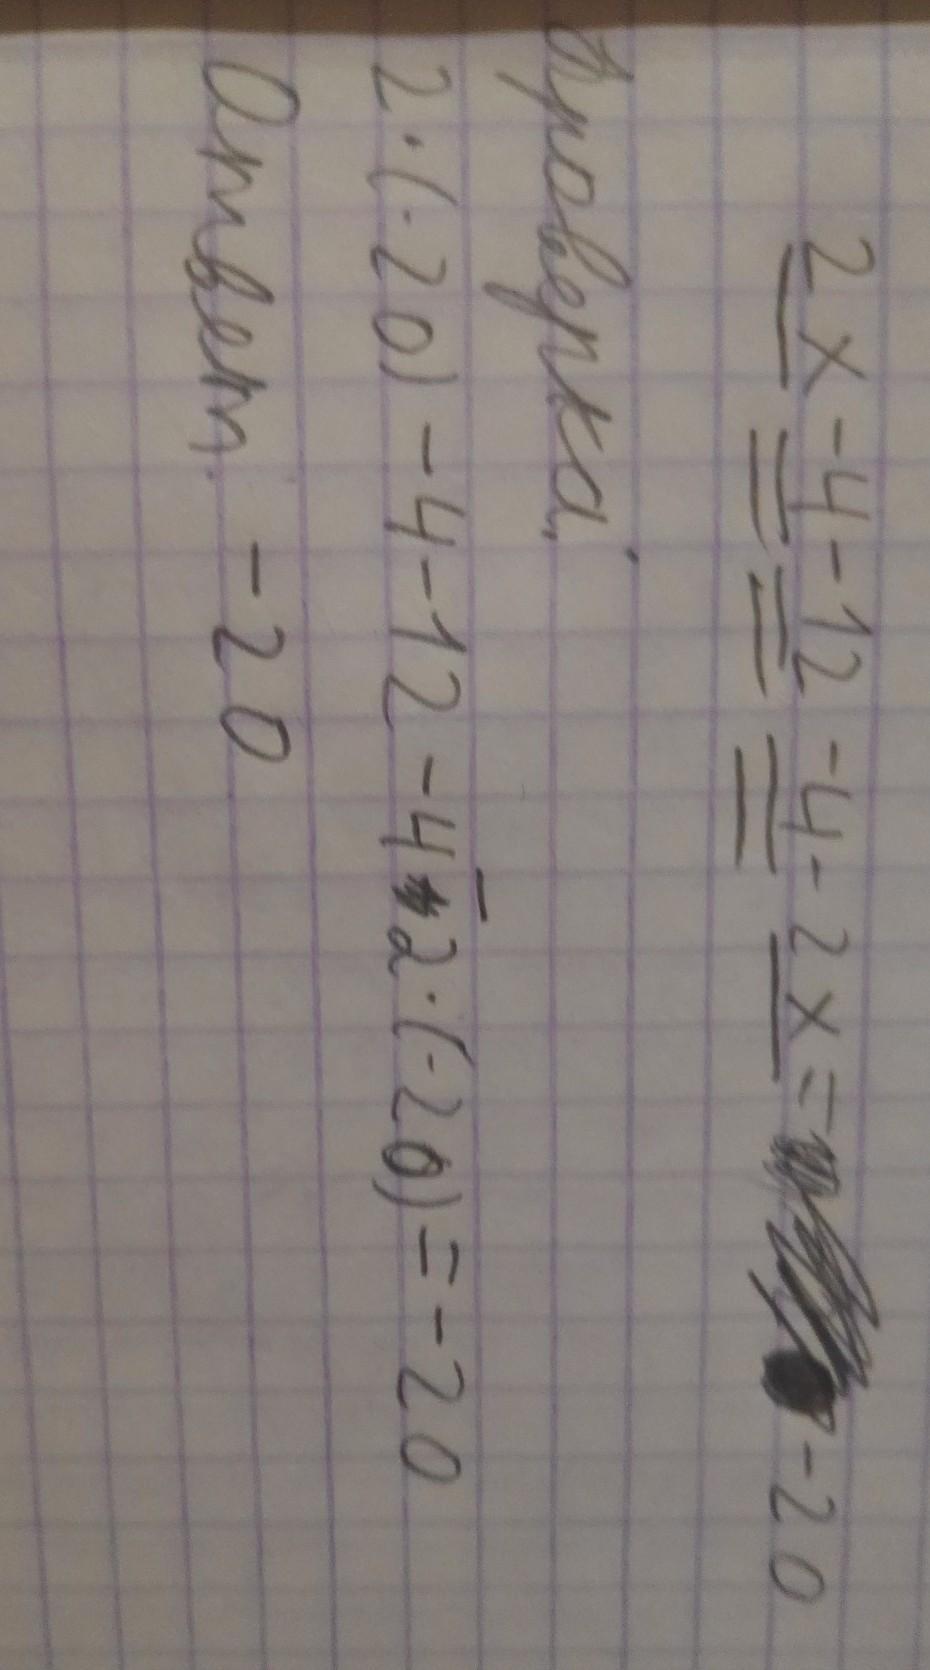 2x -4-12 -4- 2x= -20
Проверка:
2·(-20) -4-12 -4-2·(-20)=-20
Ответ. -20